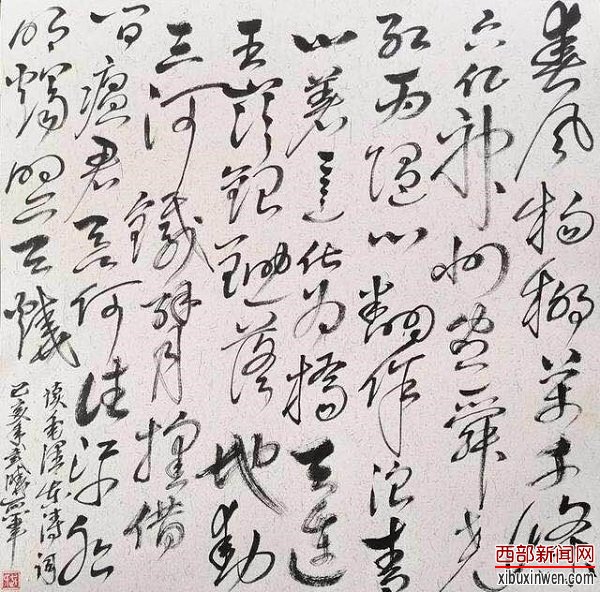 春风杨柳万千条
六亿神州尽舜尧
红雨随心翻作浪青
山著意化为橋天连
五嶺銀鋤落地动
三河鐵臂摇借
问瘟君欲何往纸船
明燭照天烧
读毛泽东诗词
己亥年
西部新闻网
xibuxinwen.com